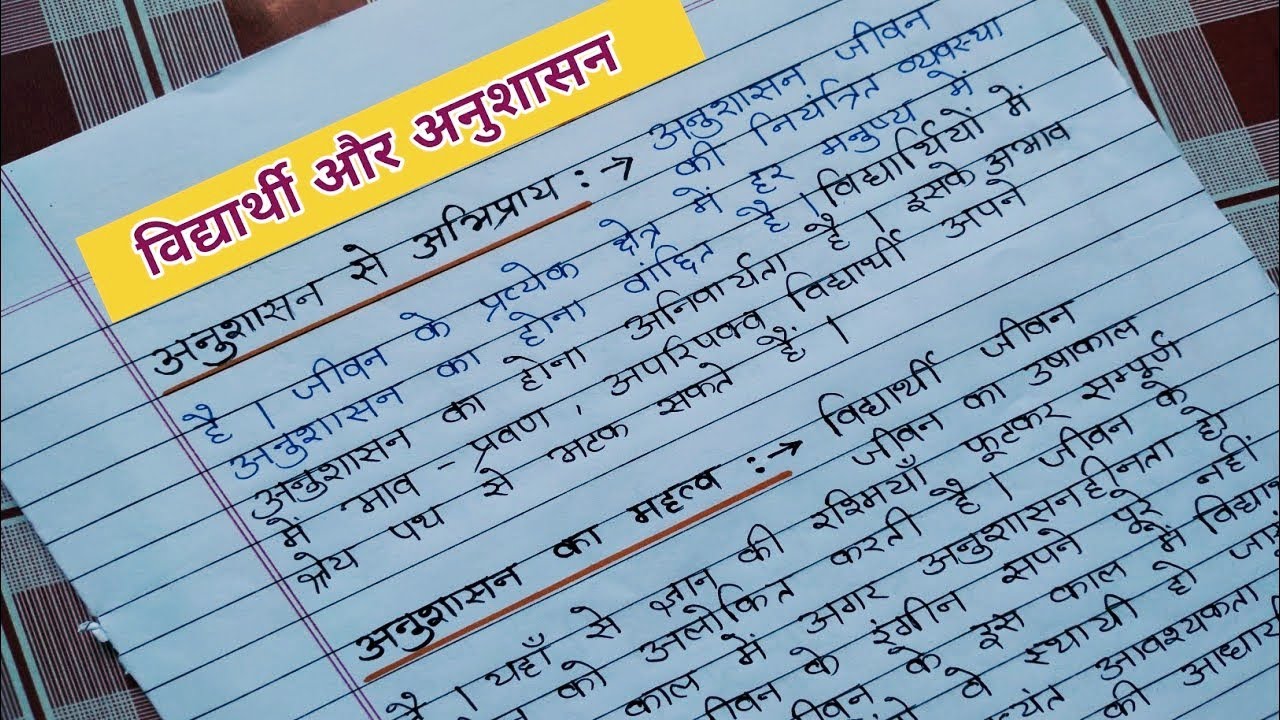 विद्यार्थी और अनुशासन
अनुशासन से अभिप्राय :→ अनुशासन जीवन
की नियंत्रित व्यवस्था
है । जीवन के प्रत्येक क्षेत्र में हर मनुष्य में
अनुशासन का होना वांछित है । विद्यार्थियों में
अनुशासन का होना अनिवार्यता है । इसके अभाव
में भाव - प्रवण , अपरिपक्व विद्यार्थी अपने
श्रेय पथ से भटक सकते हैं ।
अनुशासन का महत्व :→ विद्यार्थी जीवन
जीवन का उषाकाल
है । यहाँ से ज्ञान की रश्मियाँ फूटकर सम्पूर्ण
को अलोकित करती है । जीवन के
काल में अगर अनुशासनहीनता हो
जीवन के रंगीन सपने पूरे नहीं
जीवन के इस काल में
वे स्थायी हो
आवश्यकता
की